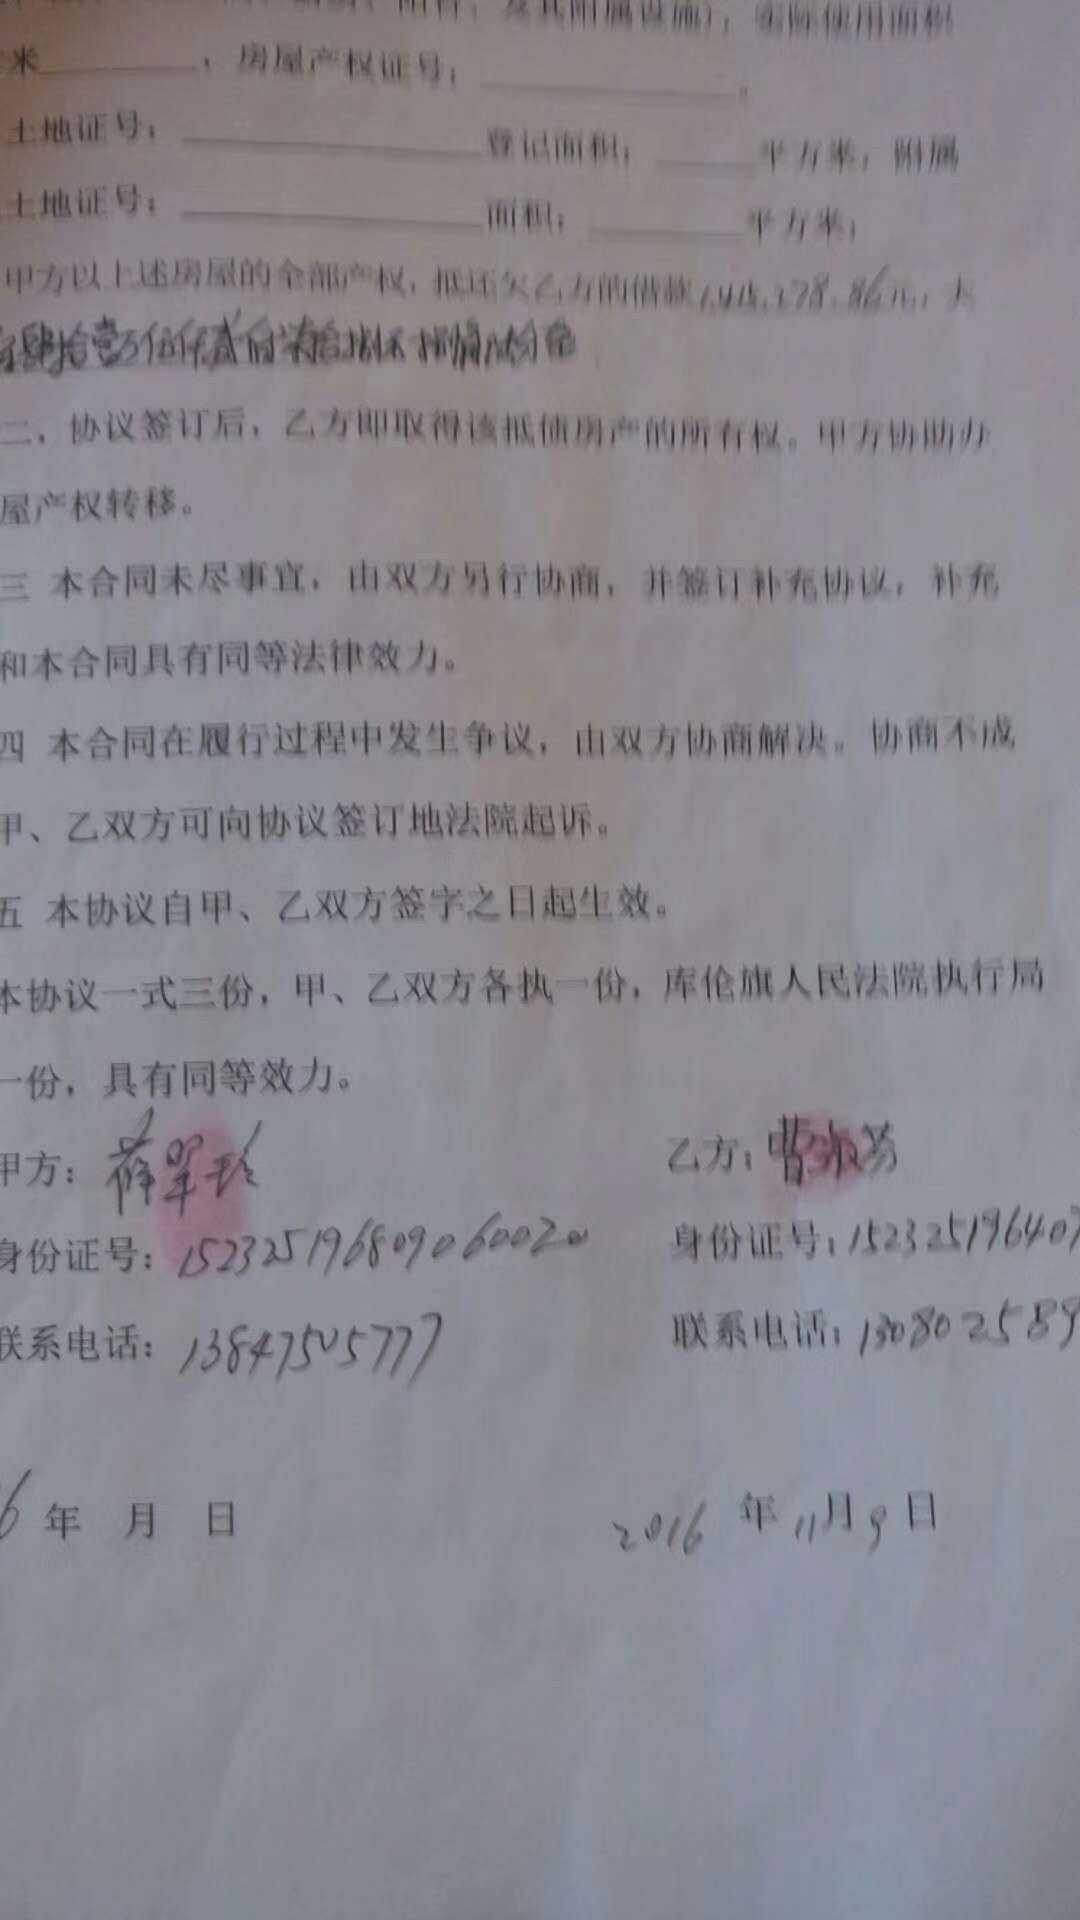 及其附属设施），实际使用面积
米________，房屋产权证号：____________。
土地证号：____________登记面积：____平方米，附属
土地证号：____________面积：______平方米；
甲方以上述房屋的全部产权，抵还欠乙方的借款 278.86元，大
二、协议签订后，乙方即取得该抵债房产的所有权。甲方协助办
屋产权转移。
三 本合同未尽事宜，由双方另行协商，并签订补充协议，补充
和本合同具有同等法律效力。
四 本合同在履行过程中发生争议，由双方协商解决。协商不成
甲、乙双方可向协议签订地法院起诉。
五 本协议自甲、乙双方签字之日起生效。
本协议一式三份，甲、乙双方各执一份，库伦旗人民法院执行局
一份，具有同等效力。
甲方： 乙方：曹淑芳
身份证号：152325196809060020 身份证号：152325196407
联系电话：13847505777 联系电话：130802589
6 年 月 日 2016 年 11月9日